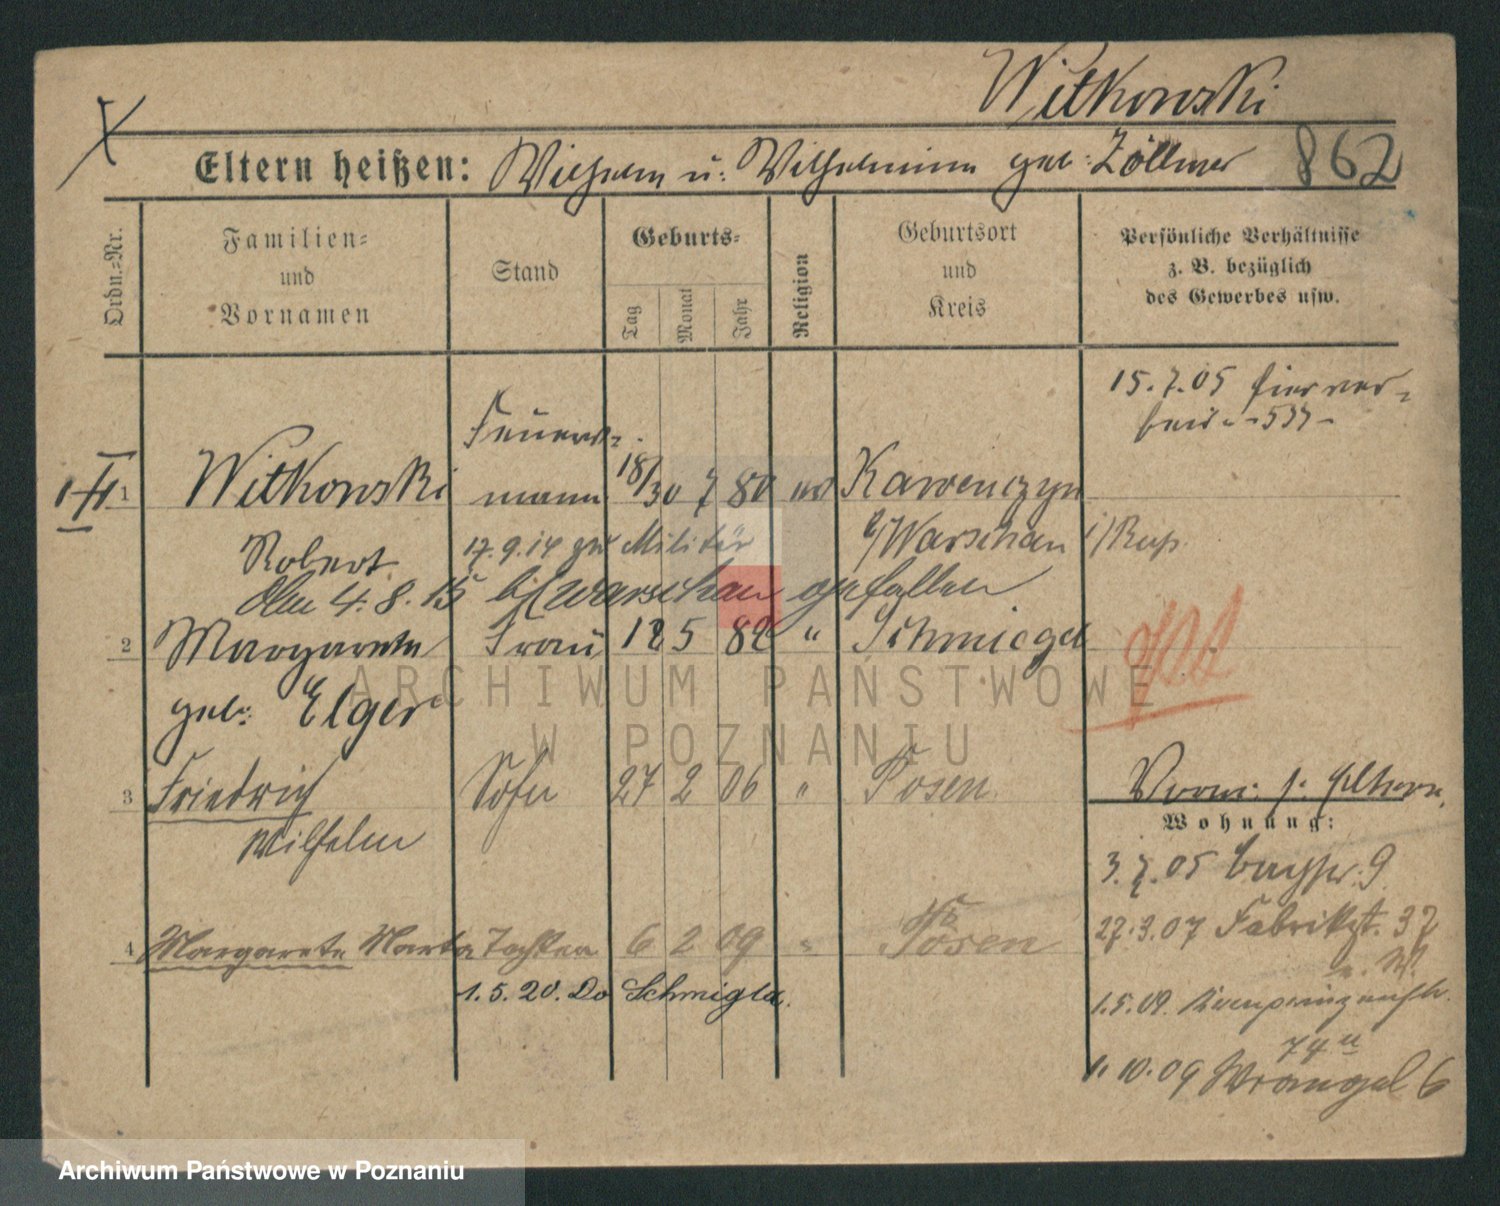 Witkowski
Eltern heißen: Wilhelm u. Wilhelmine geb. Zöllmer
862
Ordn.=Nr.
Familien=
und
Vornamen
Stand
Geburts=
Tag
Monat
Jahr
Religion
Geburtsort
und
Kreis
Persönliche Verhältnisse
z. B. bezüglich
des Gewerbes usw.
15.7.05 hier ver=
heir.
Feuer=
1 Witkowski mann 18/30 7 80 ev Kawenczyn
Robert 17.9.14 zu Militär b/Warschau i/Rusp.
Am 4.8.15 b/Warschau gefallen
2 Margarete Frau 12 5 82 " Schmiegel
geb. Elger
3 Friedrich Sohn 27 2 06 " Posen
Wilhelm
Vorm. s. Eltern
Wohnung:
3.7.05 9
27.3.07 Fabrikst. 37
4 Margarete Marta Tochter 6 2 09 " Posen
1.5.20. Do Schmigla.
1.5.09. Kronprinzenstr.
74 II
1.10.09 Wrangel 6
ARCHIWUM PAŃSTWOWE
W POZNANIU
Archiwum Państwowe w Poznaniu